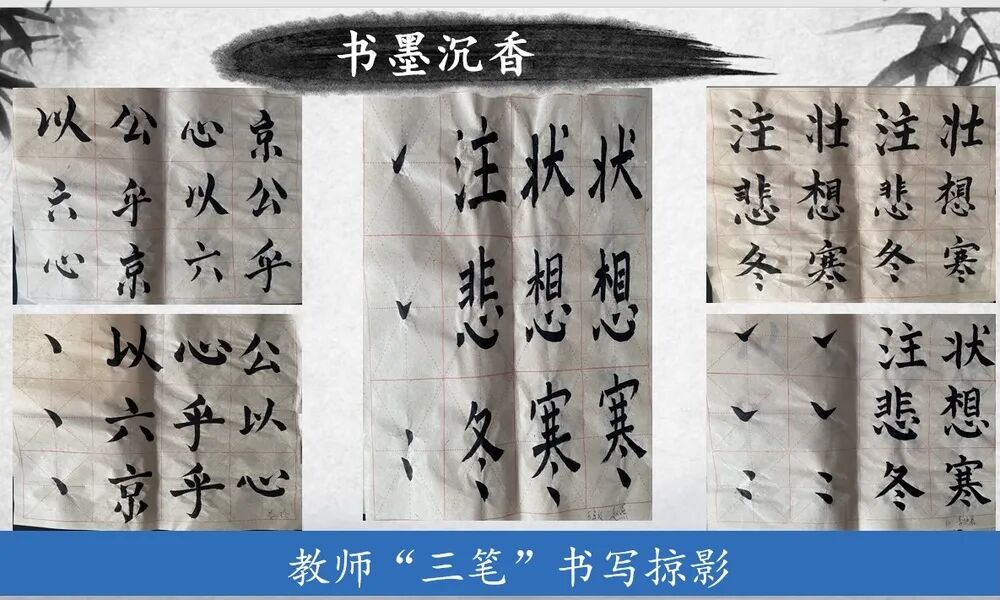 书墨沉香
以公心京
六乎以公
心京六乎
注状状
悲想想
冬寒寒
注壮注壮
悲想悲想
冬寒冬寒
以心公
六乎以
京乎心
注状
悲想
冬寒
教师“三笔”书写掠影